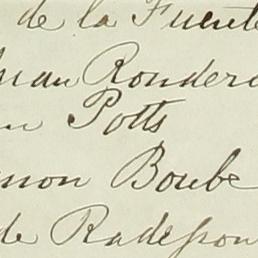 de la Fuente
Juan Rondero
Potts
Bombe
de Radepon